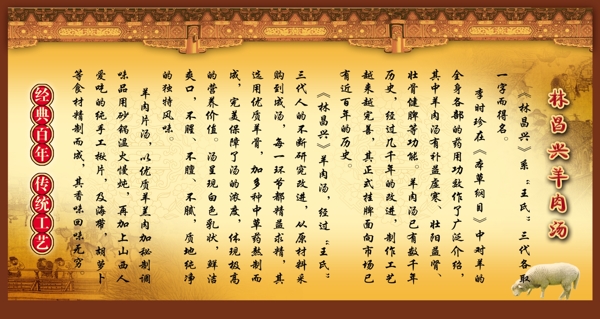 林昌兴羊肉汤
《林昌兴》系“王氏”三代各取
一字而得名。
李时珍在《本草纲目》中对羊的
全身各部的药用功效作了广泛介绍,
其中羊肉汤有补益虚寒、壮阳益肾、
壮骨健脾等功能。羊肉汤已有数千年
历史,经过几千年的改进,制作工艺
越来越完善,其正式挂牌面向市场已
有近百年的历史。
《林昌兴》羊肉汤,经过“王氏”
三代人的不断研究改进,从原材料采
购到成汤,每一环节都精益求精,其
选用优质羊骨,加多种中草药熬制而
成,完美保障了汤的浓度,体现极高
的营养价值。汤呈现白色乳状,鲜洁
爽口,不腥、不膻、不腻,质地纯净
的独特风味。
羊肉片汤,以优质羊羔肉加秘制调
味品用砂锅温火慢炖,再加上山西人
爱吃的纯手工揪片,及海带,胡萝卜
等食材精制而成,其香味回味无穷
经典百年 传统工艺